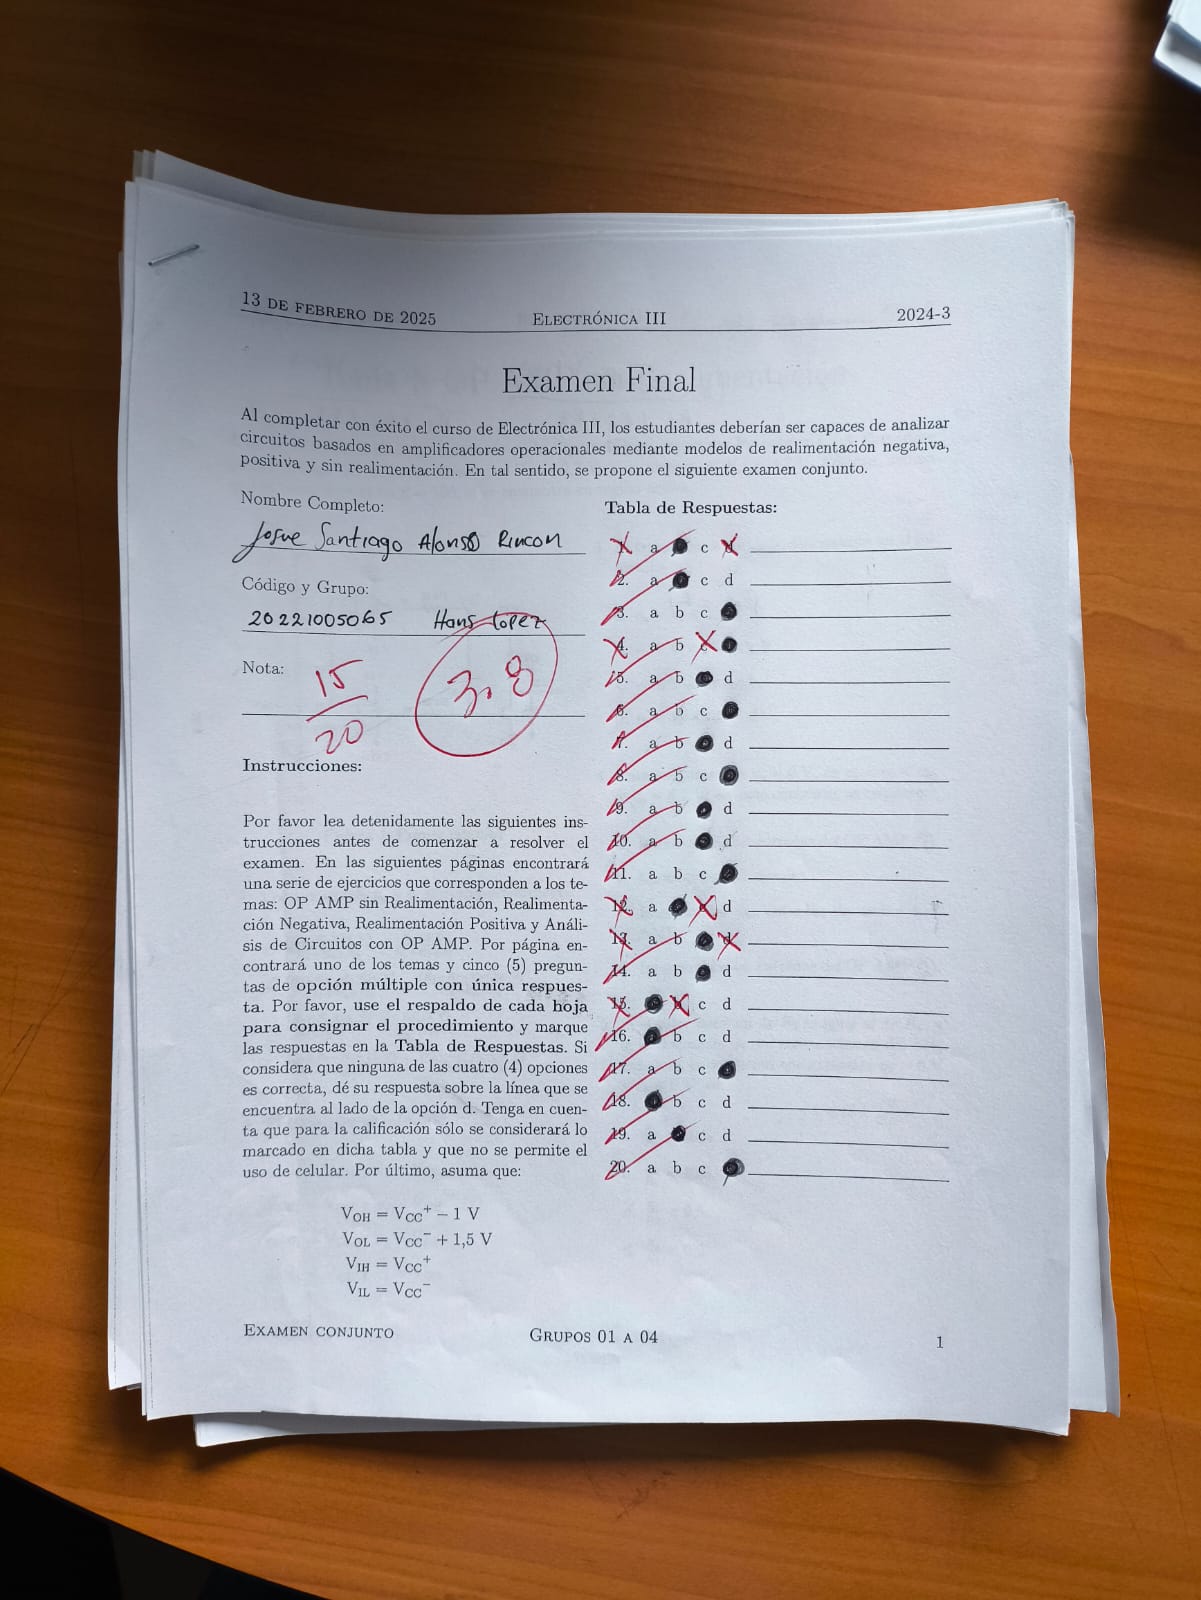 13 DE FEBRERO DE 2025 ELECTRÓNICA III 2024-3
Examen Final
Al completar con éxito el curso de Electrónica III, los estudiantes deberían ser capaces de analizar
circuitos basados en amplificadores operacionales mediante modelos de realimentación negativa,
positiva y sin realimentación. En tal sentido, se propone el siguiente examen conjunto.
Nombre Completo:
Josue Santiago Alonso Rincon
Código y Grupo:
20221005065 Hans Lopez
Nota:
15
20
3.8
Instrucciones:
Por favor lea detenidamente las siguientes ins-
trucciones antes de comenzar a resolver el
examen. En las siguientes páginas encontrará
una serie de ejercicios que corresponden a los te-
mas: OP AMP sin Realimentación, Realimenta-
ción Negativa, Realimentación Positiva y Análi-
sis de Circuitos con OP AMP. Por página en-
contrará uno de los temas y cinco (5) pregun-
tas de opción múltiple con única respues-
ta. Por favor, use el respaldo de cada hoja
para consignar el procedimiento y marque
las respuestas en la Tabla de Respuestas. Si
considera que ninguna de las cuatro (4) opciones
es correcta, dé su respuesta sobre la línea que se
encuentra al lado de la opción d. Tenga en cuen-
ta que para la calificación sólo se considerará lo
marcado en dicha tabla y que no se permite el
uso de celular. Por último, asuma que:
VOH = VCC+ − 1 V
VOL = VCC− + 1,5 V
VIH = VCC+
VIL = VCC−
Tabla de Respuestas:
a c d
2. a c d
3. a b c
4. a b
5. a b d
6. a b c
7. a b d
8. a b c
9. a b d
10. a b d
11. a b c
12. a d
13. a b
14. a b d
15. c d
16. b c d
17. a b c
18. b c d
19. a c d
20. a b c
EXAMEN CONJUNTO GRUPOS 01 A 04 1